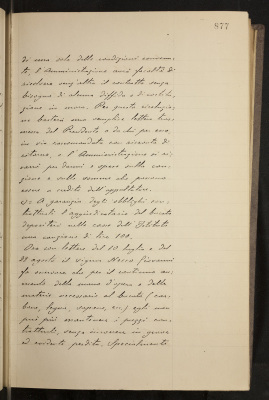 877
di una sola delle condizioni convenu-
te, l'Amministrazione avrà facoltà di
risolvere senz'altro il contratto senza
bisogno di alcuna diffida o di costitu-
zione in mora. Per questa risoluzio-
ne basterà una semplice lettera
del Presidente o da chi per esso,
in via raccomandata con ricevuta di
ritorno, e l'Amministrazione si
per danni e spese sulla cau-
zione e sulle somme che possano
essere a credito dell'appaltatore.
A garanzia degli obblighi con-
trattuali l'aggiudicatario del bucato
depositerà nella cassa dell'Istituto
una cauzione di lire 500.
Ora con lettere del 20 luglio e del
28 agosto il signor Giovanni
fa conoscere che per il continuo au-
mento della mano d'opera e delle
materie necessarie al bucato (car-
bone, legna, sapone, ecc.) egli non
può più mantenere i prezzi con-
trattuali, senza incorrere in grave
ed evidente perdita. Specialmente